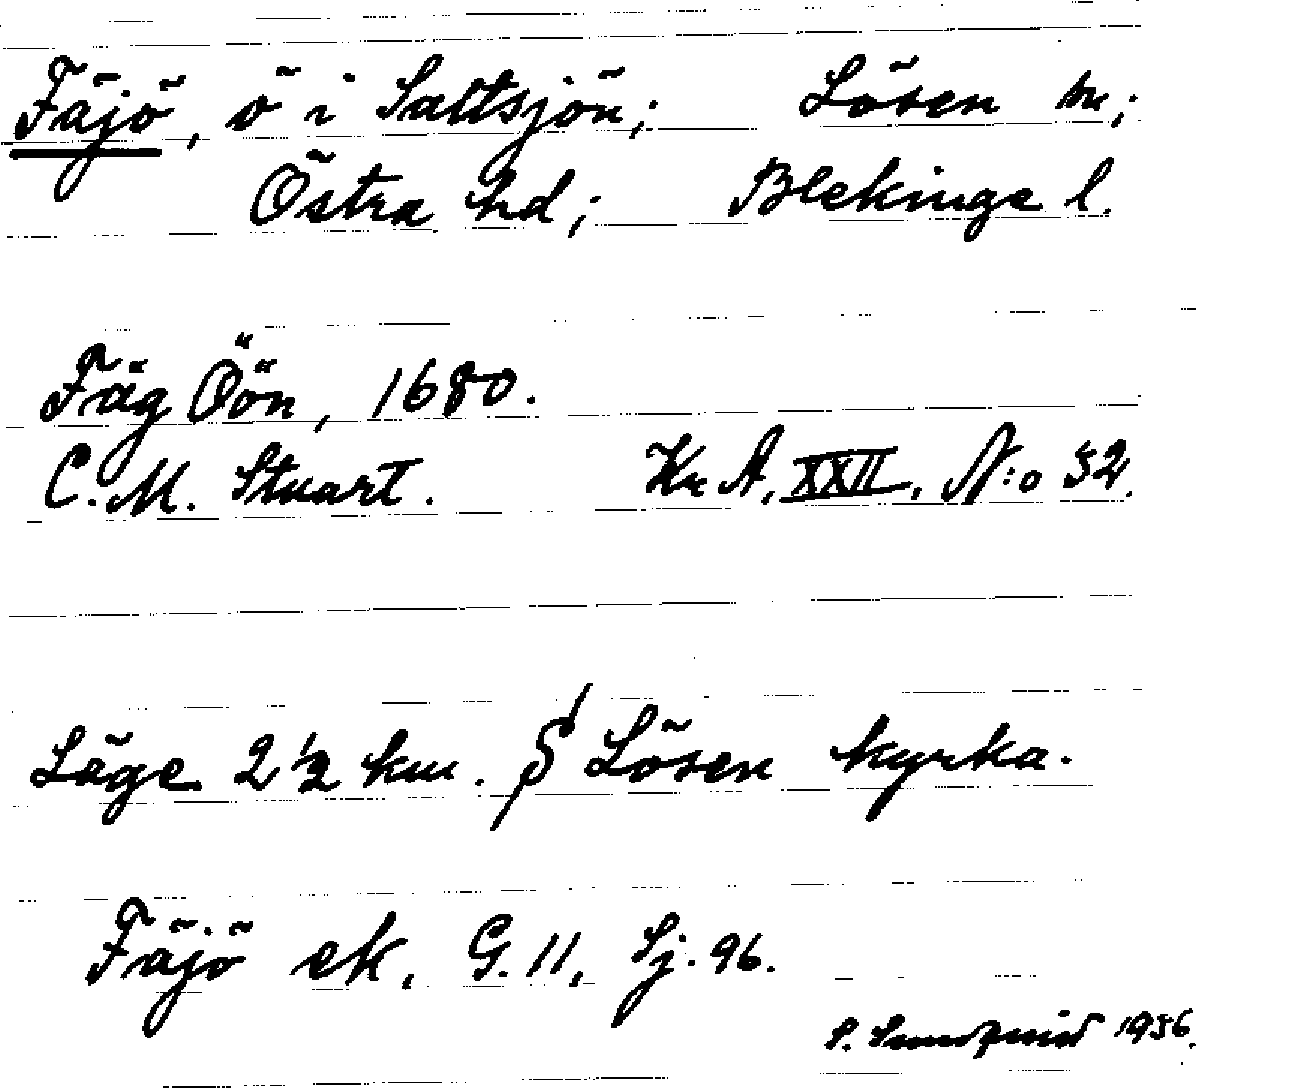 Fäjö, ö i Saltsjön; Lösen sn;
Östra hd; Blekinge l.
Fäg Öön, 1680.
C. M. Stuart. Kr A, XXII, N:o 52.
Läge 2 1/2 km. S Lösen kyrka.
Fäjö ek, G. 11, Sj. 96.
S. 1956.